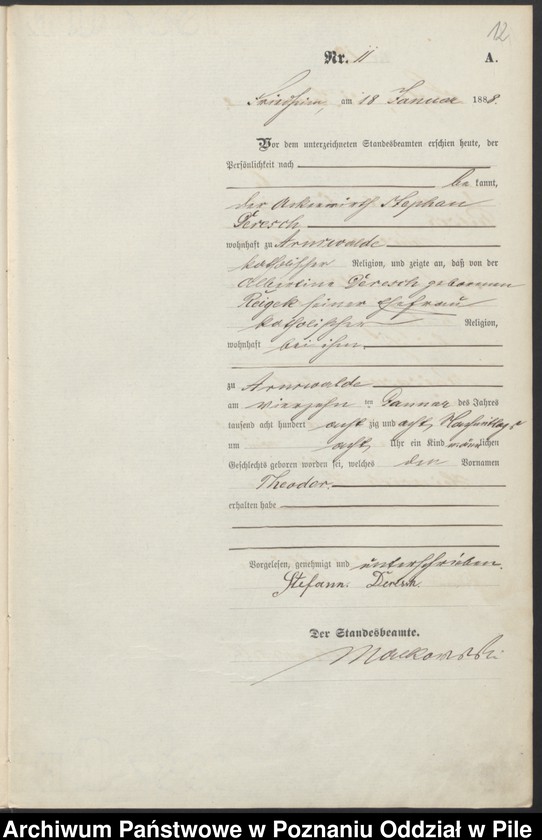 12
Nr. 11 A.
Friedheim, am 18. Januar 1888.
Vor dem unterzeichneten Standesbeamten erschien heute, der
Persönlichkeit nach
be kannt,
der Ackerwirth Stephan
Deresch
wohnhaft zu Arnswalde
katholischer Religion, und zeigte an, daß von der
Albertine Deresch geborenen
seiner Ehefrau
katholischer Religion,
wohnhaft bei ihm
zu Arnswalde
am vierzehn ten Januar des Jahres
tausend acht hundert acht zig und acht, Nachmittags
um acht Uhr ein Kind männlichen
Geschlechts geboren worden sei, welches den Vornamen
Theodor
erhalten habe
Vorgelesen, genehmigt und unterschrieben.
Stefann Deresch
Der Standesbeamte.
Mackowski
Archiwum Państwowe w Poznaniu Oddział w Pile